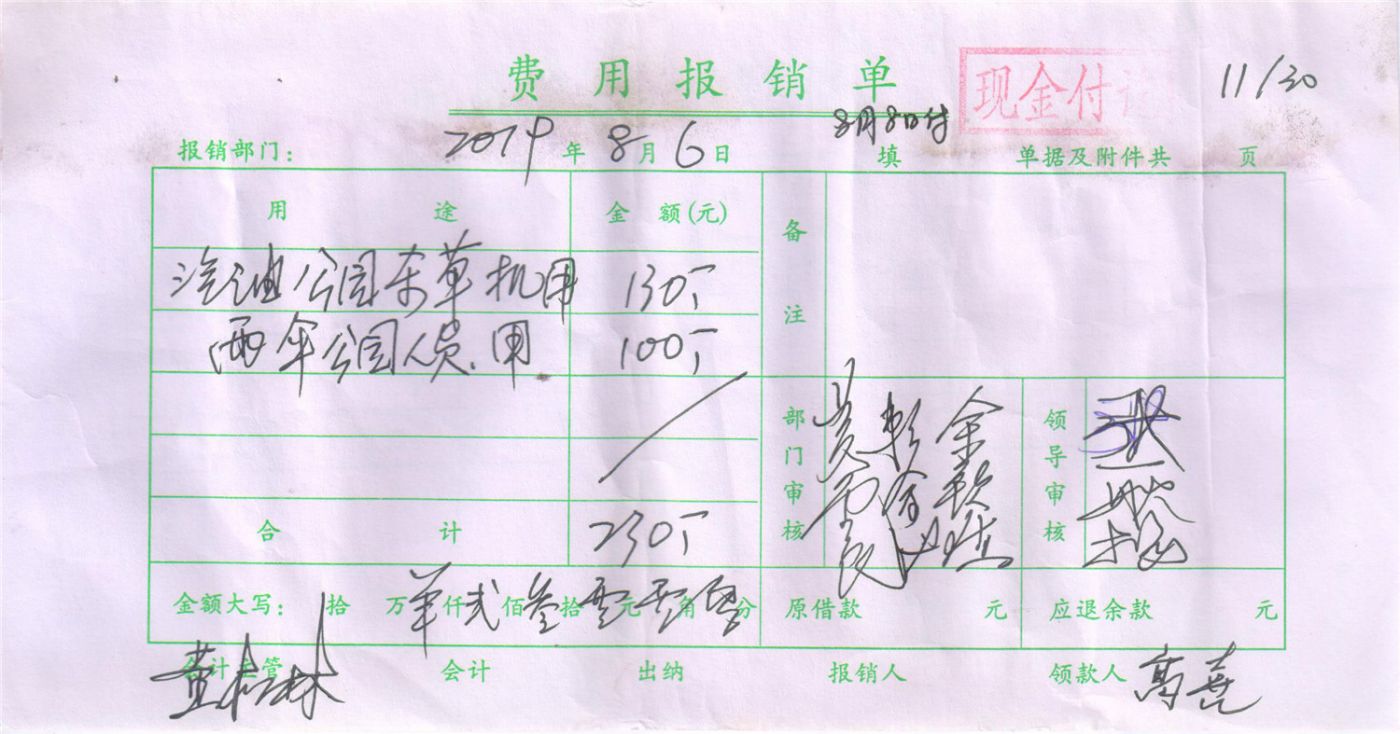 费用报销单
现金付
11/30
8月8日付
报销部门: 2019年8月6日 填 单据及附件共 页
用途 金额(元) 备注
汽油公园杂草机用 130
雨伞公园人员用 100
部门审核 领导审核
合计 230
金额大写: 拾 万 仟 贰佰 叁拾 零元 零角 分 原借款 元 应退余款 元
会计主管 会计 出纳 报销人 领款人 高喜